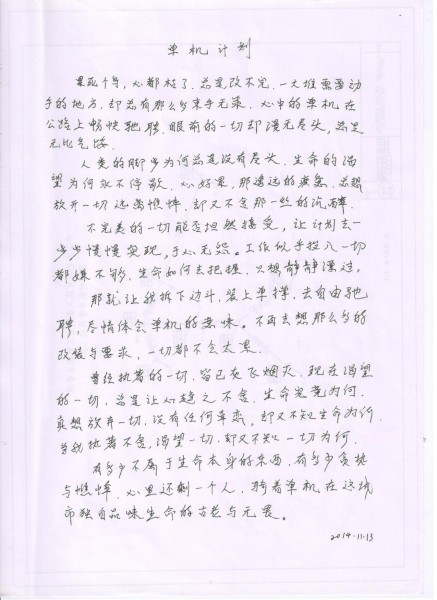 单机计划
累死个得，心都枯了，总是改不完，一大堆需要动
手的地方，却总有那么多束手无策，心中的单机在
公路上畅快驰骋，眼前的一切却漫无尽头，总是
无比气馁。
人类的脚步为何总是没有尽头，生命的渴
望为何永不停歇，心好累，那遥远的疲惫，总想
放开一切远离憔悴，却又不舍那一丝的沉醉。
不完美的一切能否坦然接受，让计划去一
步步慢慢实现，于心无怨。工作似乎投入一切
都嫌不够，生命如何去把握，只想静静漂过，
那就让我拆下边斗，装上单撑，去自由驰
骋，尽情体会单机的意味。不再去想那么多的
改装与要求，一切都不会太累。
曾经执著的一切，皆已灰飞烟灭，现在渴望
的一切，总是让心趋之不舍，生命究竟为何，
真想放开一切，没有任何牵恋，却又不知生命为何，
当我执著不舍，渴望一切，却又不知一切为何。
有多少不属于生命本身的东西，有多少贪婪
与憔悴，心里还剩一个人，骑着单机在这城
市独自品味生命的古老与无畏。
2014.11.13